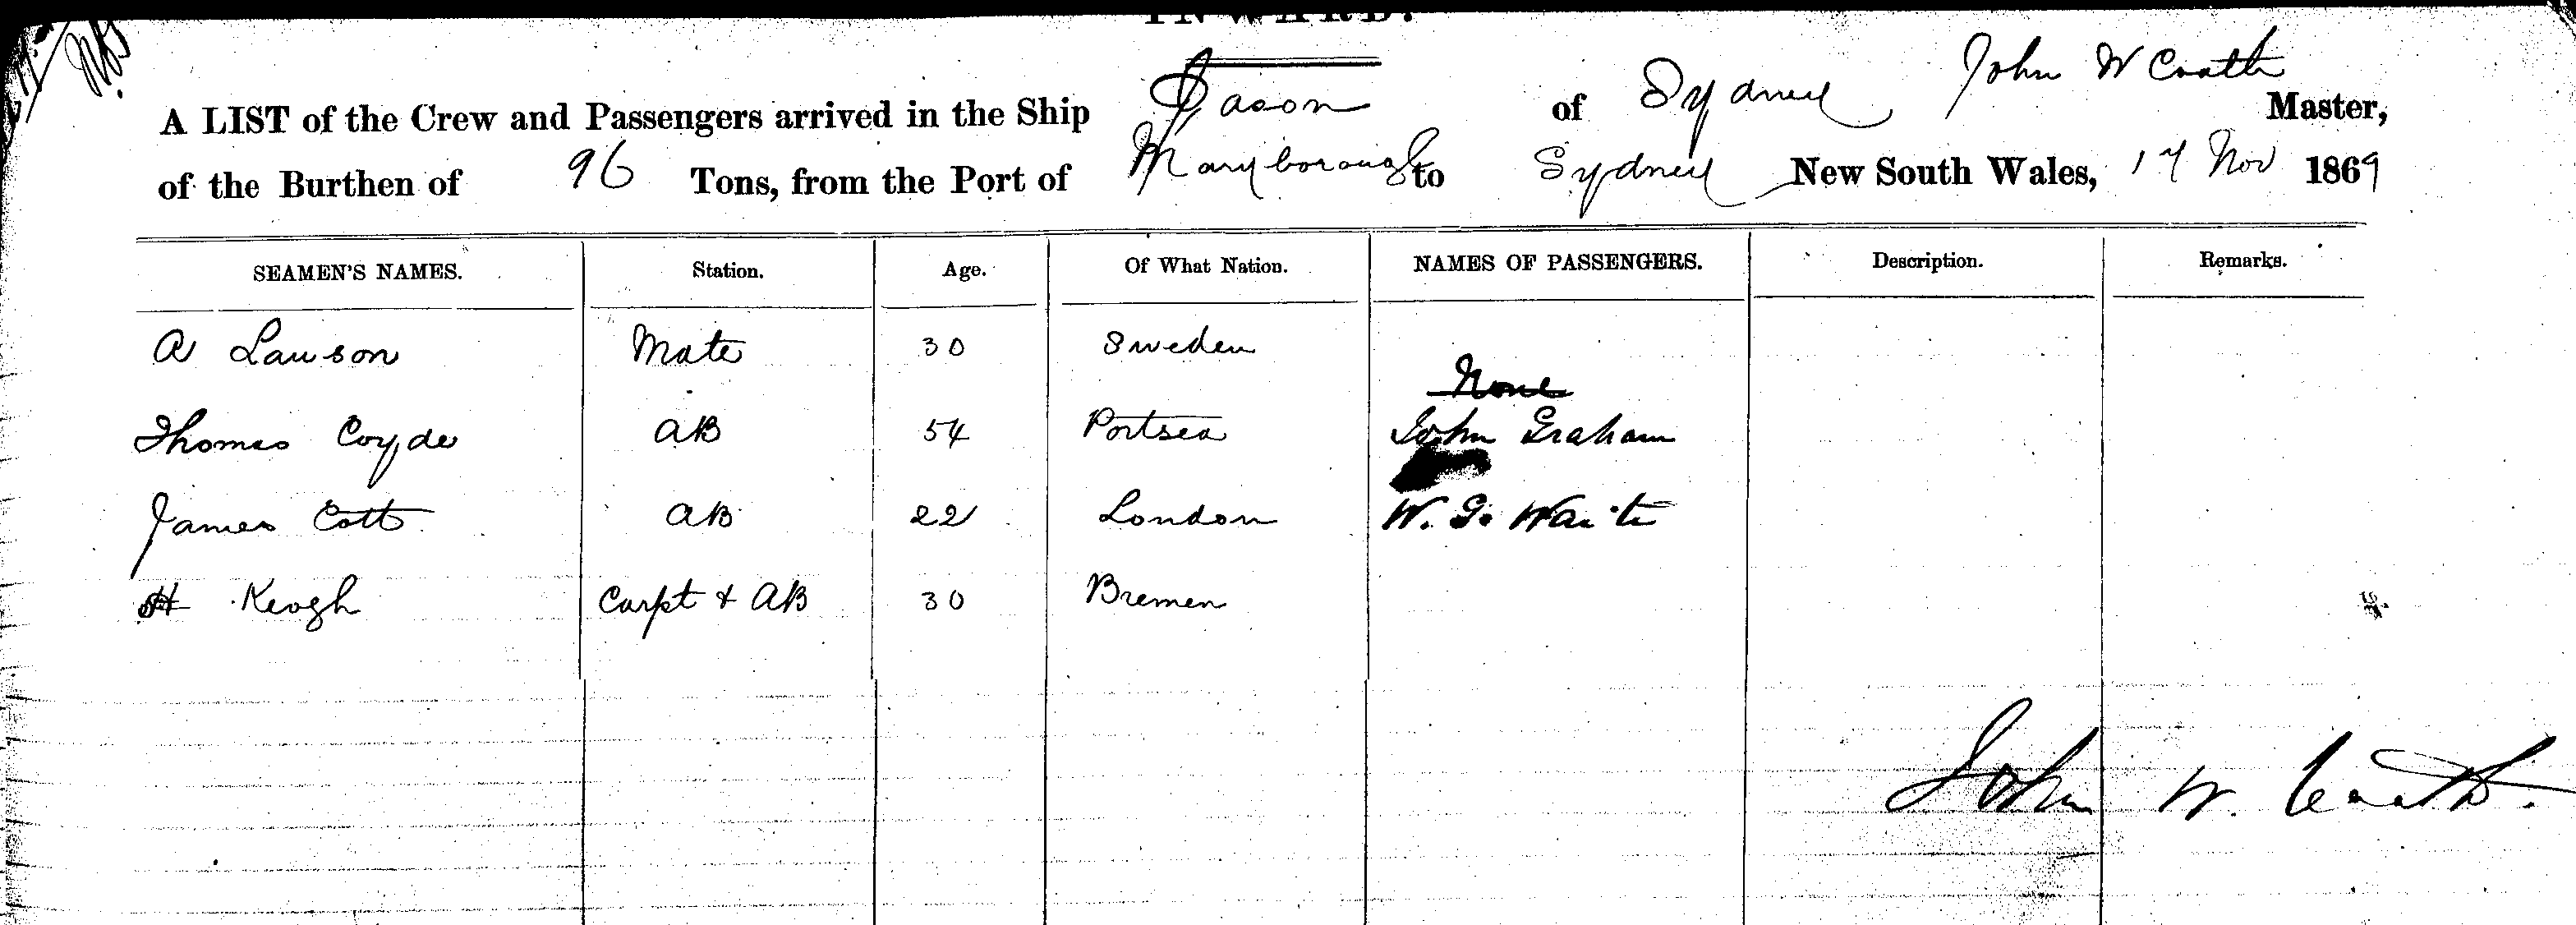 INWARD.
A LIST of the Crew and Passengers arrived in the Ship Jason of Sydney John W Coath Master,
of the Burthen of 96 Tons, from the Port of Maryborough to Sydney New South Wales, 17 Nov 1869
SEAMEN'S NAMES. Station. Age. Of What Nation. NAMES OF PASSENGERS. Description. Remarks.
A Lawson Mate 30 Sweden
None
Thomas Coyde AB 54 Portsea John Graham
James Cott AB 22 London W. G. Waite
H Keogh Carpt & AB 30 Bremen
John W. Coath.